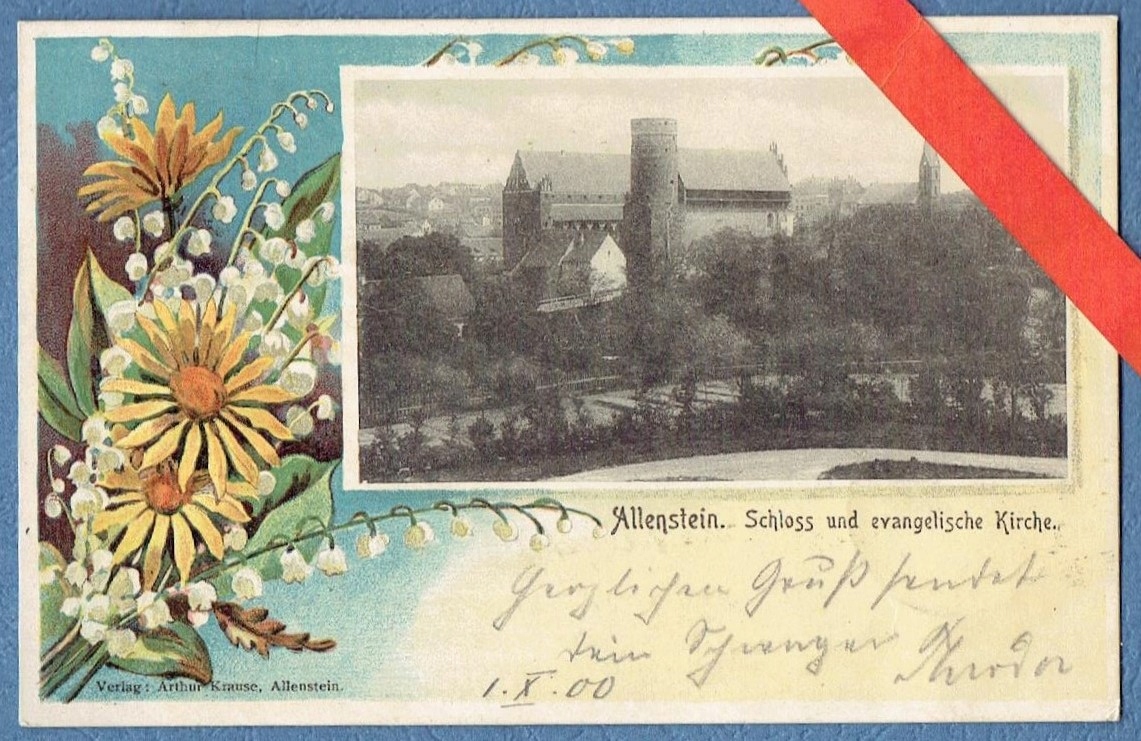 Allenstein. Schloss und evangelische Kirche.
Herzlichen Gruß sendet
dein Schwager Theodor
1.X.00
Verlag: Arthur Krause, Allenstein.